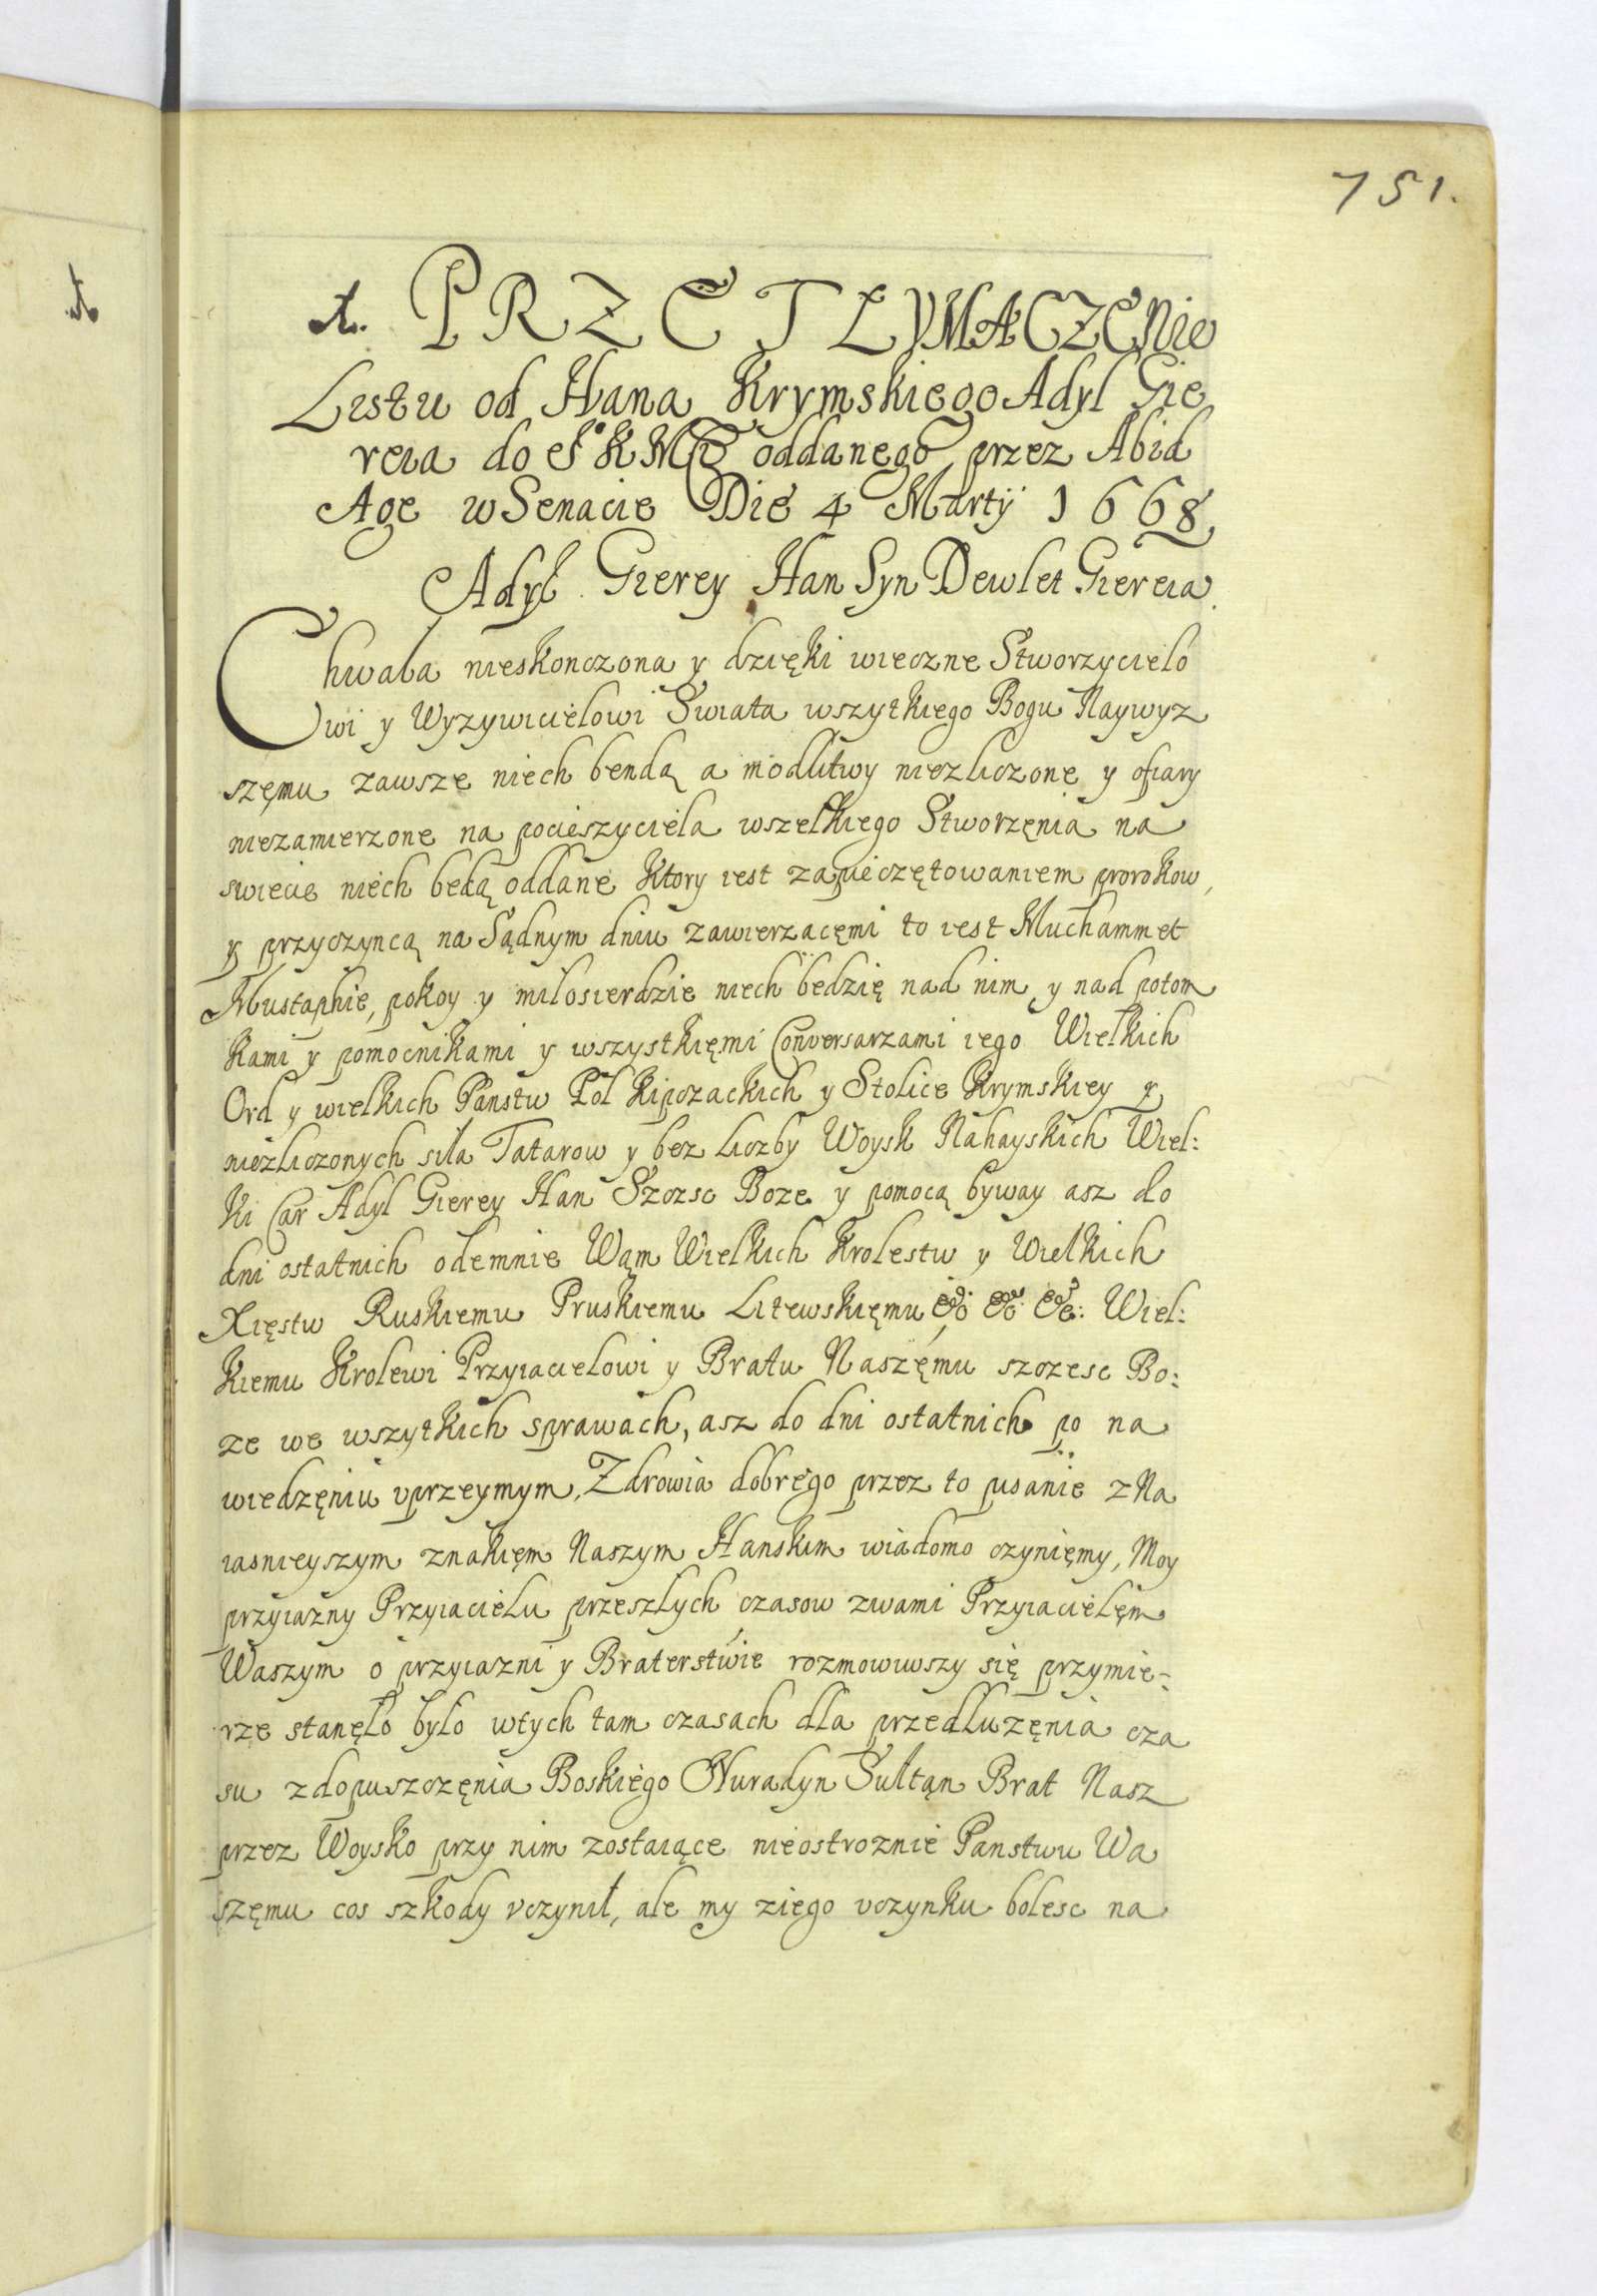 751.
A. PRZETLYMACZENie
Listu od Hana Krymskiego Adyl Gie
reia do JKMCi oddanego przez Abid
Age w Senacie Die 4 Martÿ 1668
Adyl Gierey Han Syn Dewlet Giereia
Chwala nieskonczona y dzięki wieczne Stworzycielo
wi y Wyzywicielowi Swiata wszytkiego Bogu Naywyz
szęmu zawsze niech bendą a modlitwy niezliczone y ofiary
niezamierzone na pocieszyciela wszelkiego Stworzęnia na
swiecie niech bedą oddane Ktory iest zapieczętowaniem prorokow,
y przyczyncą na Sądnym dniu zawierzacęmi to iest Muchammet
Mustaphie, pokoy y milosierdzie niech bedzię nad nim y nad potom
kami y pomocnikami y wszystkięmi Conversarzami iego Wielkich
Ord y wielkich Panstw Pol Kipczackich y Stolice Krymskiey y
niezliczonych sila Tatarow y bez liczby Woysk Nahayskich Wiel:
Ki Car Adyl Gierey Han Szczsc Boze y pomocą byway asz do
dni ostatnich odemnie Wąm Wielkich Krolestw y Wielkich
Xięstw Ruskiemu Pruskiemu Litewskięmu &c &c &c: Wiel:
Kiemu Krolewi Przyiacielowi y Bratu Naszęmu szczesc Bo:
ze we wszytkich sprawach, asz do dni ostatnich po na
wiedzęniu vprzeymym, Zdrowia dobrego przez to pisanie z Na
iasnieyszym znakięm Naszym Hanskim wiadomo czynięmy, Moy
przyiazny Przyiacielu przeszlych czasow zwami Przyiacielęm
Waszym o przyiazni y Braterstwie rozmowiwszy się przymie-
rze stanęlo bylo wtych tam czasach dla przedluzęnia cza
su zdopuszczęnia Boskiego Nuradyn Sultąn Brat Nasz
przez Woysko przy nim zostaiące nieostroznie Panstwu Wa
szęmu cos szkody vczynił, ale my ziego vczynku bolesc na